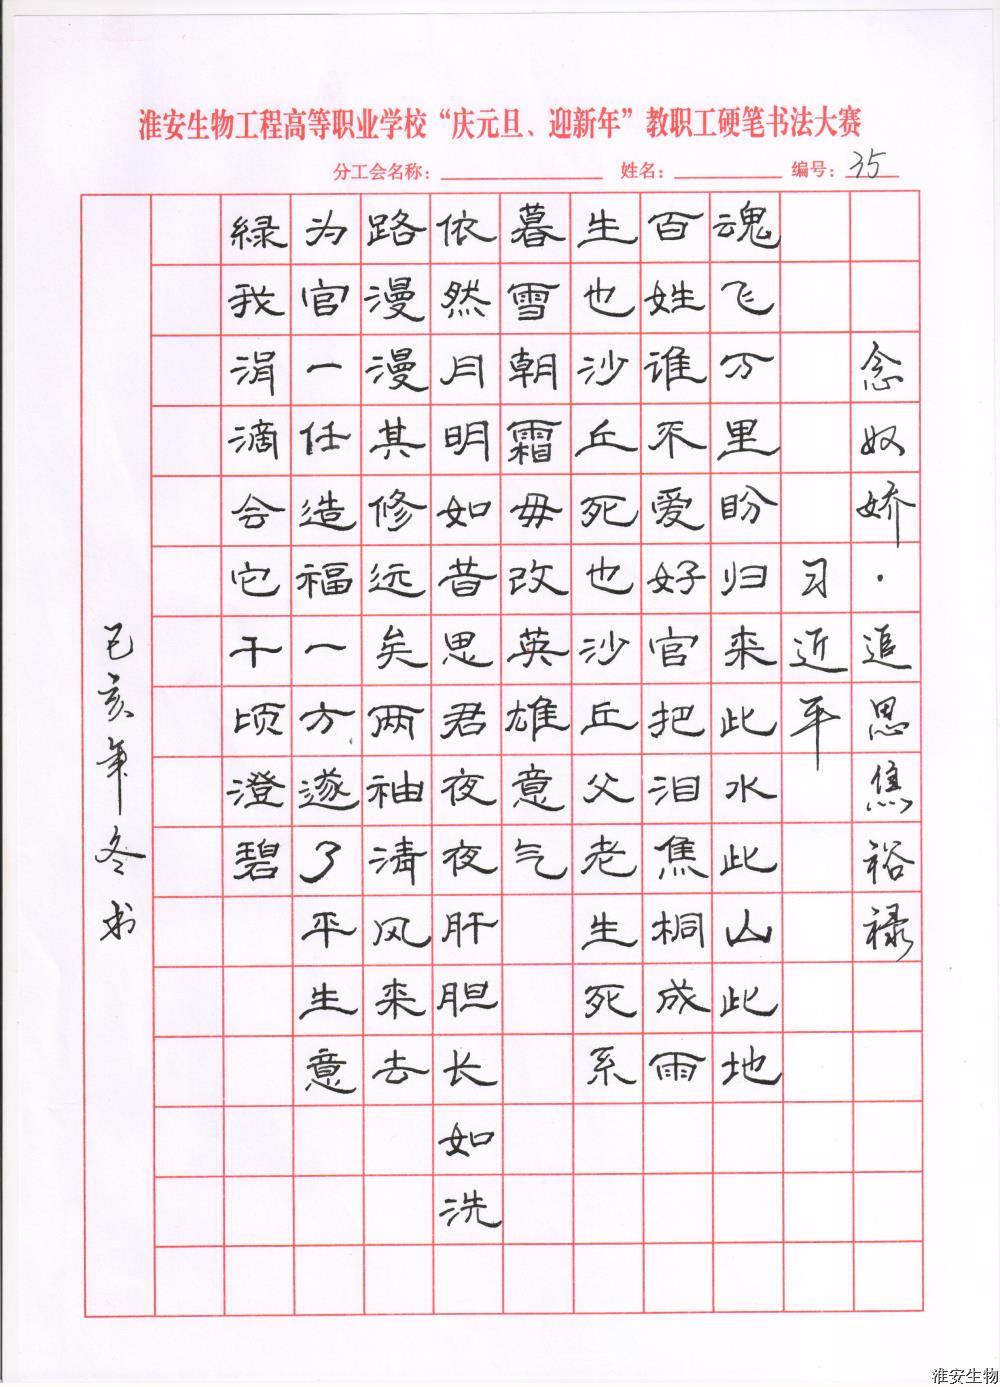 淮安生物工程高等职业学校“庆元旦、迎新年”教职工硬笔书法大赛
分工会名称： 姓名： 编号：35
念奴娇·追思焦裕禄
习近平
魂飞万里盼归来此水此山此地
百姓谁不爱好官把泪焦桐成雨
生也沙丘死也沙丘父老生死系
暮雪朝霜毋改英雄意气
依然月明如昔思君夜夜肝胆长如洗
路漫漫其修远矣两袖清风来去
为官一任造福一方遂了平生意
绿我涓滴会它千顷澄碧
己亥年冬书
淮安生物